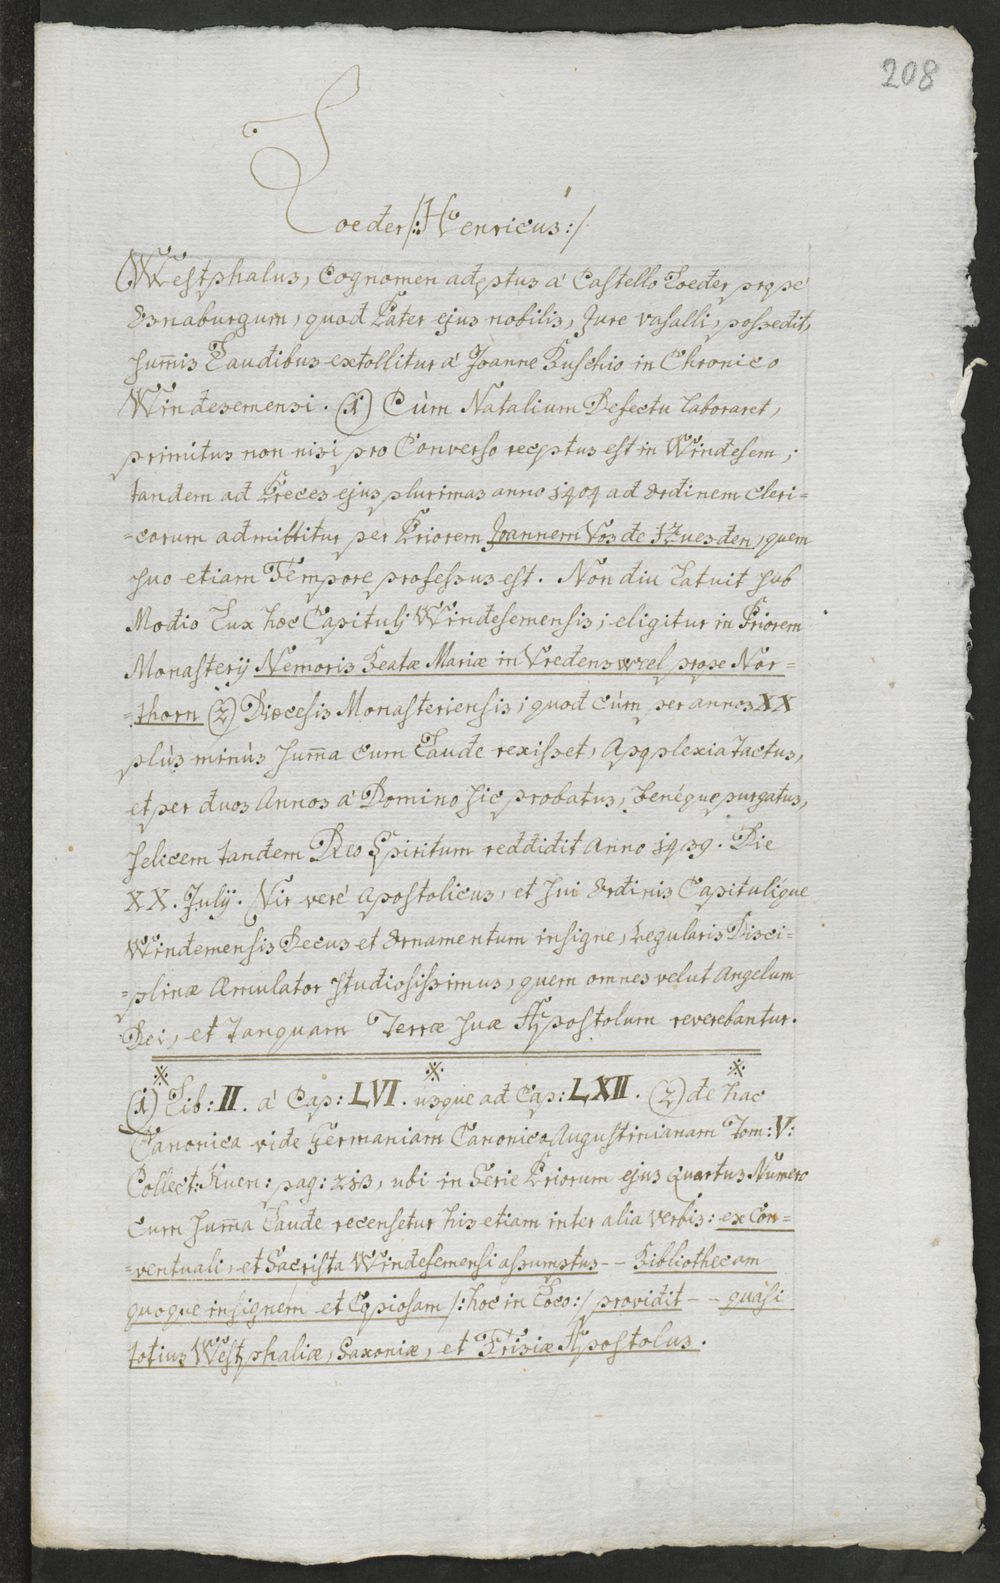 208
Loeder /: Henricus :/
Westphalus, Cognomen adeptus á Castello Loeder prope
Osnaburgum, quod Pater ejus nobilis, Jure vasalli, possedit,
sum̄is Laudibus extollitur á Joanne Buschio in Chronico
Windesemensi. (1) Cùm Natalium Defectu laboraret,
primitus non nisi pro Converso receptus est in Windesem;
tandem ad Preces ejus plurimas anno 1404 ad Ordinem Cleri=
=corum admittitur per Priorem Joannem Vos de Huesden, quem
suo etiam Tempore professus est. Non diu latuit sub
Modio Lux hoc Capitulj Windesemensis; eligitur in Priorem
Monasterij Nemoris Beatæ Mariæ in Vredenswrel prope Nor=
=thorn (2) Diœcesis Monasteriensis; quod cùm per annos XX
plùs minùs sum̄a cum Laude rexisset, Apoplexia tactus,
et per duos Annos á Domino sic probatus, benéque purgatus,
felicem tandem Deo Spiritum reddidit Anno 1439. Die
XX. Julij. Vir veré Apostolicus, et sui Ordinis Capitulíque
Windemensis Decus et Ornamentum insigne, Regularis Disci=
=plinæ Æmulator studiosissimus, quem omnes velut Angelum
Dei, et tanquam Terræ suæ Apostolum reverebantur.
(1) Lib: II. á Cap: LVI. usque ad Cap: LXII. (2) de hac
Canonica vide Germaniam Canonico Augustinianam Tom: V:
Collect: Kuen: pag: 213, ubi in Serie Priorum ejus Quartus Numero
Cum sum̄a Laude recensetur his etiam inter alia Verbis: ex Con=
=ventuali, et Sacrista Windesemensi assumptus - - Bibliothecam
quoque insignem et Copiosam /: hoc in Loco :/ providit - - quàsi
totius Westphaliæ, Saxoniæ, et Frisiæ Apostolus.